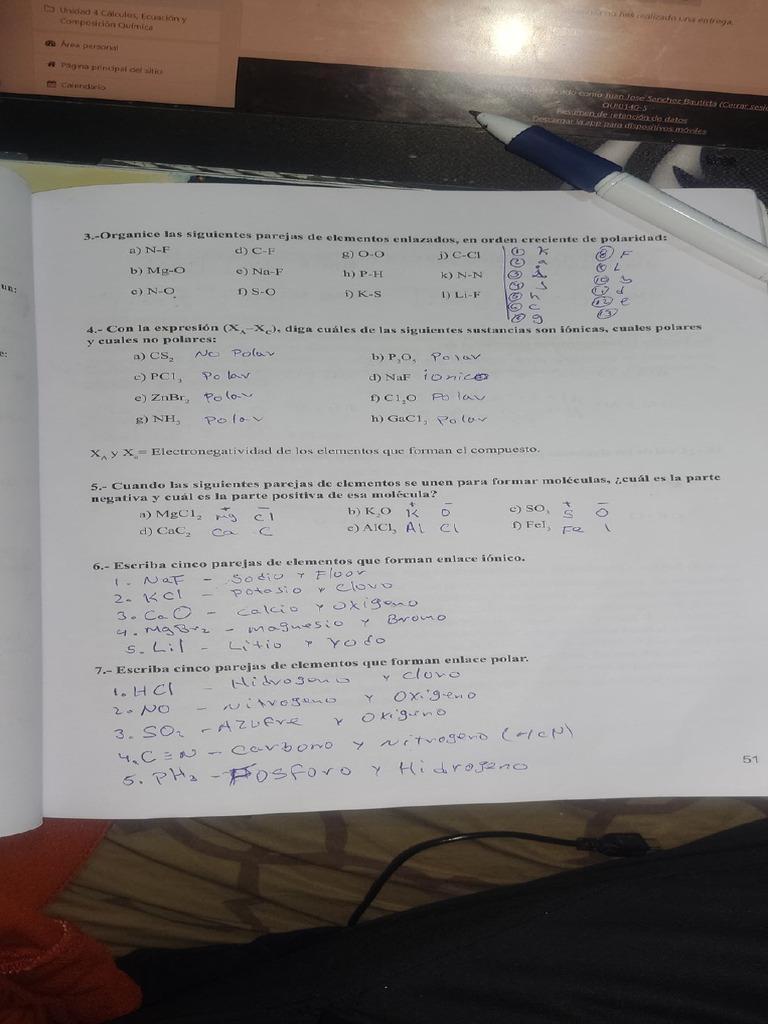 Unidad 4 Cálculos, Ecuación y
Composición Química
no has realizado una entrega.
Área personal
Página principal del sitio
Calendario
como Juan Jose Sanchez Bautista (Cerrar
QUI0140-5
Resumen de retención de datos
Descargar la app para dispositivos móviles
3.-Organice las siguientes parejas de elementos enlazados, en orden creciente de polaridad:
a) N-F d) C-F g) O-O j) C-Cl
b) Mg-O e) Na-F h) P-H k) N-N
c) N-O f) S-O i) K-S l) Li-F
1 K 8 F
2 a 9 L
3 10 b
4 J 11 d
5 h 12 e
6 c 13
g
4.- Con la expresión (XA-XC), diga cuáles de las siguientes sustancias son iónicas, cuales polares
y cuales no polares:
a) CS2 No Polar b) P2O5 Polar
c) PCl3 Polar d) NaF ionico
e) ZnBr2 Polar f) Cl2O Polar
g) NH3 Polar h) GaCl3 Polar
XA y Xc= Electronegatividad de los elementos que forman el compuesto.
5.- Cuando las siguientes parejas de elementos se unen para formar moléculas, ¿cuál es la parte
negativa y cuál es la parte positiva de esa molécula?
a) MgCl2 Mg+ Cl- b) K2O K+ O- c) SO3 S+ O-
d) CaC2 Ca C e) AlCl3 Al Cl f) FeI3 Fe I
6.- Escriba cinco parejas de elementos que forman enlace iónico.
1. NaF - Sodio y Fluor
2. KCl - Potasio y Cloro
3. CaO - Calcio y Oxigeno
4. MgBr2 - magnesio y Bromo
5. LiI - Litio y Yodo
7.- Escriba cinco parejas de elementos que forman enlace polar.
1. HCl - Hidrogeno y Cloro
2. NO - Nitrogeno y Oxigeno
3. SO2 - Azufre y Oxigeno
4. C≡N - Carbono y Nitrogeno (HCN)
5. PH3 - Fosforo y Hidrogeno
51